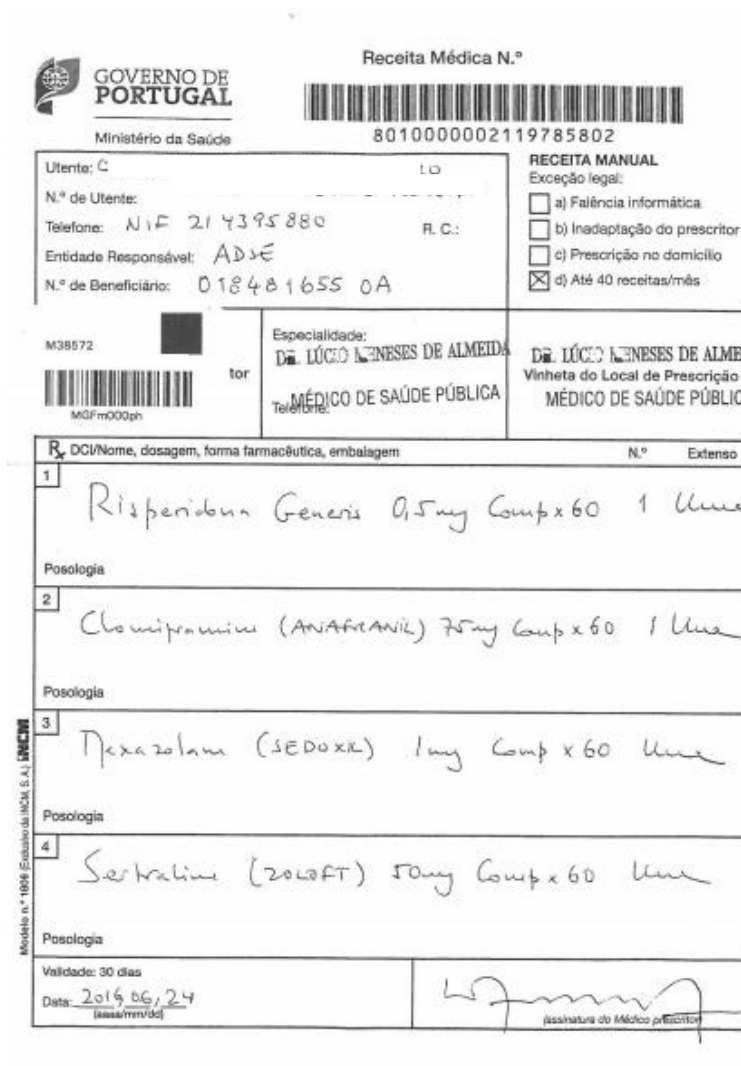 Receita Médica N.º
GOVERNO DE
PORTUGAL
Ministério da Saúde
8010000002119785802
Utente: C
N.º de Utente:
Telefone: NIF 214395880 R. C.:
Entidade Responsável: ADSE
N.º de Beneficiário: 018481655 0A
RECEITA MANUAL
Exceção legal:
a) Falência informática
b) Inadaptação do prescritor
c) Prescrição no domicílio
d) Até 40 receitas/mês
M38572
tor
MGFm000ph
Especialidade:
DR. LÚCIO MENESES DE ALMEIDA
MÉDICO DE SAÚDE PÚBLICA
Telefone:
DR. LÚCIO MENESES DE ALME
Vinheta do Local de Prescrição
MÉDICO DE SAÚDE PÚBLIC
Rx DCI/Nome, dosagem, forma farmacêutica, embalagem N.º Extenso
1
Risperidona Generis 0,5mg Comp x 60 1 Uma
Posologia
2
Clomipramine (ANAFRANIL) 75mg Comp x 60 1 Uma
Posologia
3
Mexazolam (SEDOXIL) 1mg Comp x 60 Uma
Posologia
4
Sertraline (ZOLOFT) 50mg Comp x 60 Uma
Posologia
Modelo n.º 1806 (Exclusivo da INCM, S. A.) INCM
Validade: 30 dias
Data: 2019,06,24
(aaaa/mm/dd)
(assinatura do Médico prescritor)